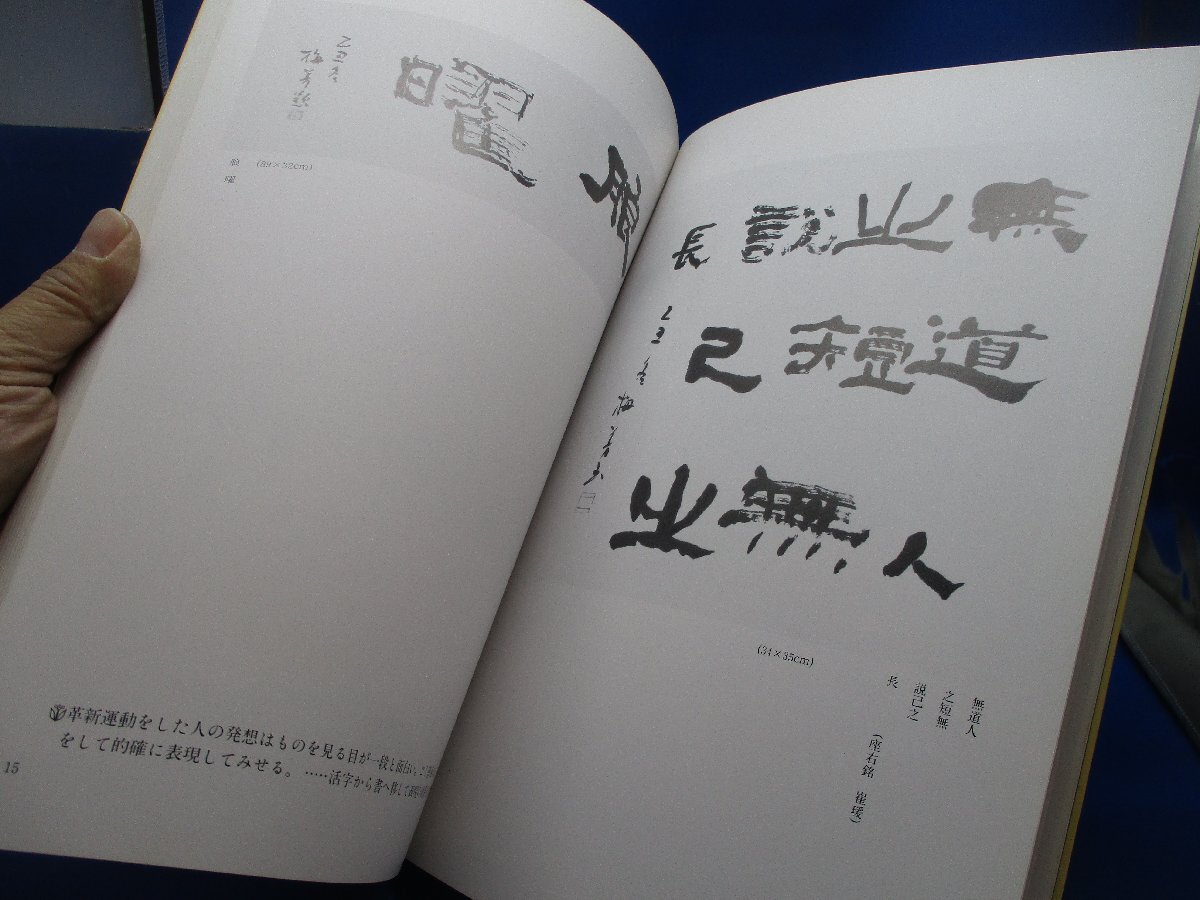 曜
乙丑冬
(89×32cm)
曜
革新運動をした人の発想はものを見る目が一段と面白い
をして的確に表現してみせる。……活字から書へ移して
15
無道人
之短無
説己之
長
乙丑冬梅芳書
(34×35cm)
無道人
之短無
説己之
長
(座右銘 崔瑗)